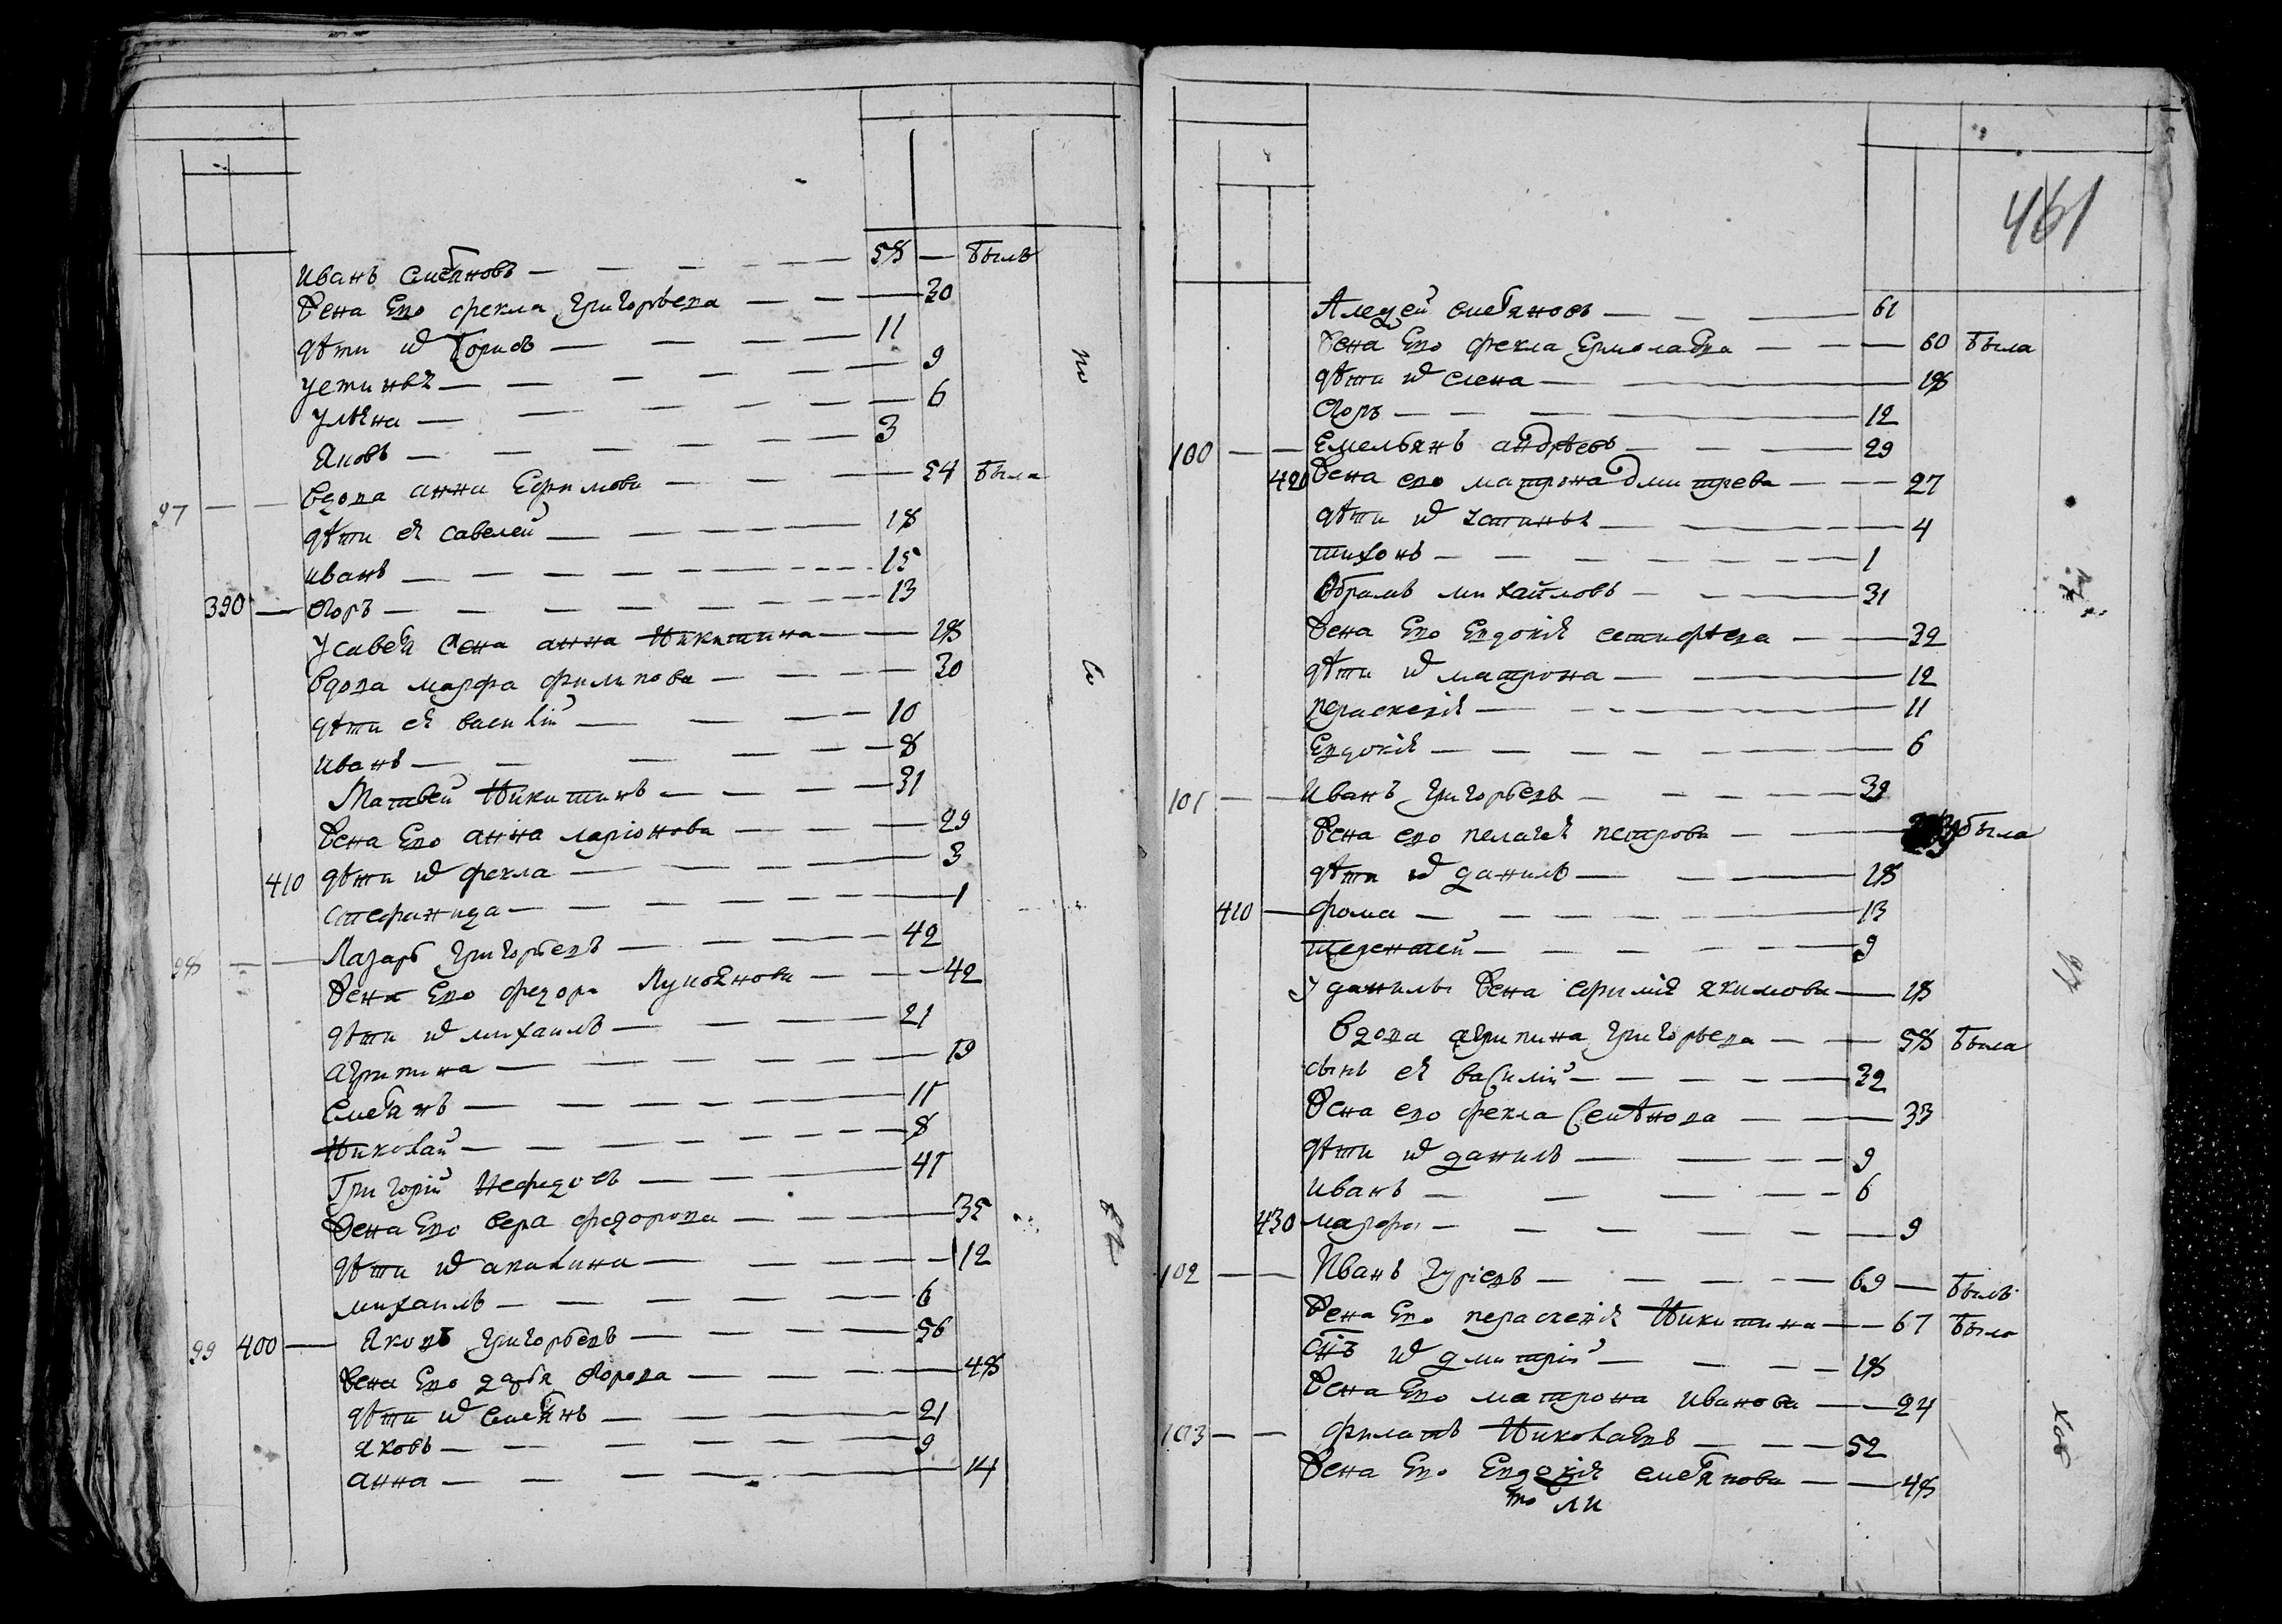 Иванъ Степановъ — 58 — былъ
Жена Ево Фекла Григорьева — 30
дѣти их Борисъ — 11
Устинья — 9
Ульяна — 6
Яковъ — 3
97 — Вдова Анна Ефимова — 54 была
дѣти ея Савелей — 18
Иванъ — 15
390 — Егоръ — 13
У Савелья Жена Анна Никитина — 18
Вдова Марфа Филипова — 30
дѣти ея Василій — 10
Иванъ — 8
Матвей Никитинъ — 31
Жена Ево Анна Ларіонова — 29
410 дѣти их Фекла — 3
Стефанида — 1
98 — Лазарь Григорьевъ — 42
Жена Ево Федора Лукоянова — 42
дѣти их Михаилъ — 21
Агрипина — 19
Степанъ — 11
Николай — 8
Григорій Нефедовъ — 41
Жена Ево Вера Федорова — 35
дѣти их Акилина — 12
Михаилъ — 6
99 400 — Яковъ Григорьевъ — 56
Жена Ево Дарья Егорова — 48
дѣти их Степанъ — 21
Яковъ — 9
Анна — 14
461
Алексей Степановъ — 61
Жена Ево Фекла Ермолаева — 60 была
дѣти их Елена — 18
Егоръ — 12
100 — Емельянъ Андрѣевъ — 29
420 Жена ево Матрона Дмитрева — 27
дѣти их Устинья — 4
Тихонъ — 1
Абрамъ Михайловъ — 31
Жена Ево Евдокія — 32
дѣти их Матрона — 12
Параскевія — 11
Евдокія — 6
101 — Иванъ Григорьевъ — 39
Жена ево Пелагея Петрова — была
дѣти их Данилъ — 18
410 — Фома — 13
Терентей — 9
У Данилы Жена Ефимія Якимова — 18
Вдова Агрипина Григорьева — 58 была
сынъ ея Василій — 32
Жена ево Фекла Семѣнова — 33
дѣти их Данилъ — 9
Иванъ — 6
430 Марфа — 9
102 — Иванъ Гурьевъ — 69 — былъ
Жена Ево Параскевія Никитина — 67 была
снъ их Дмитрій — 18
Жена Ево Матрона Иванова — 24
103 — Филатъ Николаевъ — 52
Жена Ево Евдокія Степанова — 48